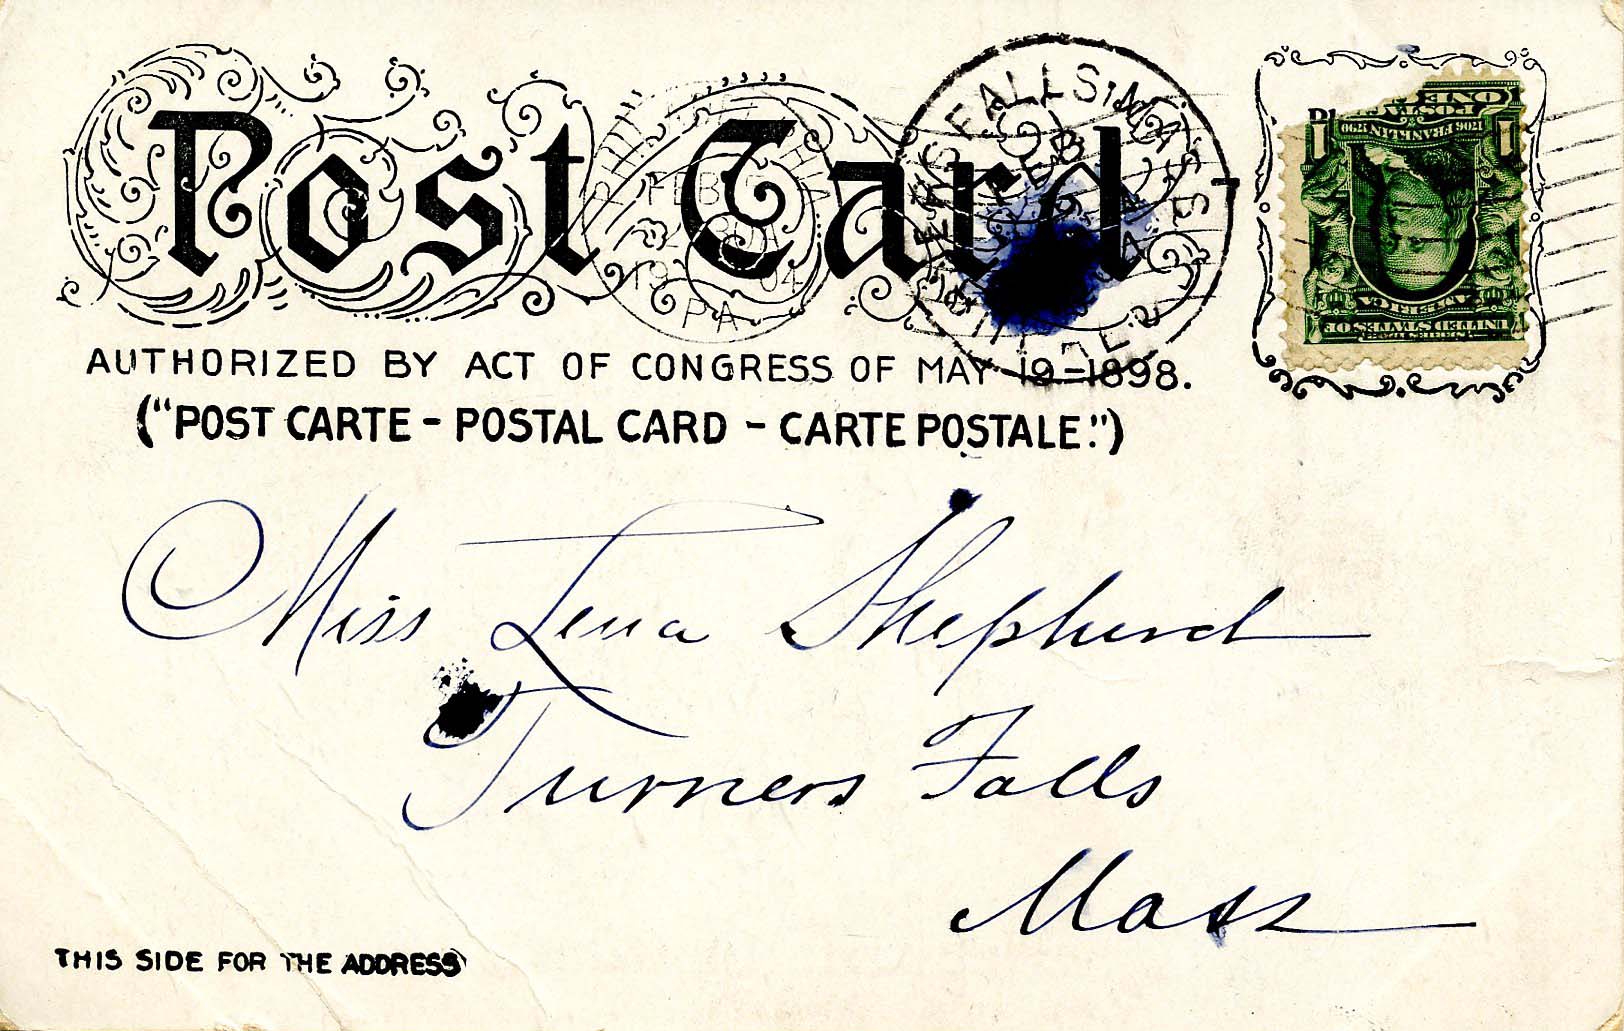 Post Card
PHILADELPHIA
FEB
1904
PA
AUTHORIZED BY ACT OF CONGRESS OF MAY 19-1898.
("POST CARTE - POSTAL CARD - CARTE POSTALE.")
ONE
1706 FRANKLIN 1790
1 1
AMERICA
UNITED STATES OF
Miss Lena Shepherd
Turners Falls
Mass
THIS SIDE FOR THE ADDRESS